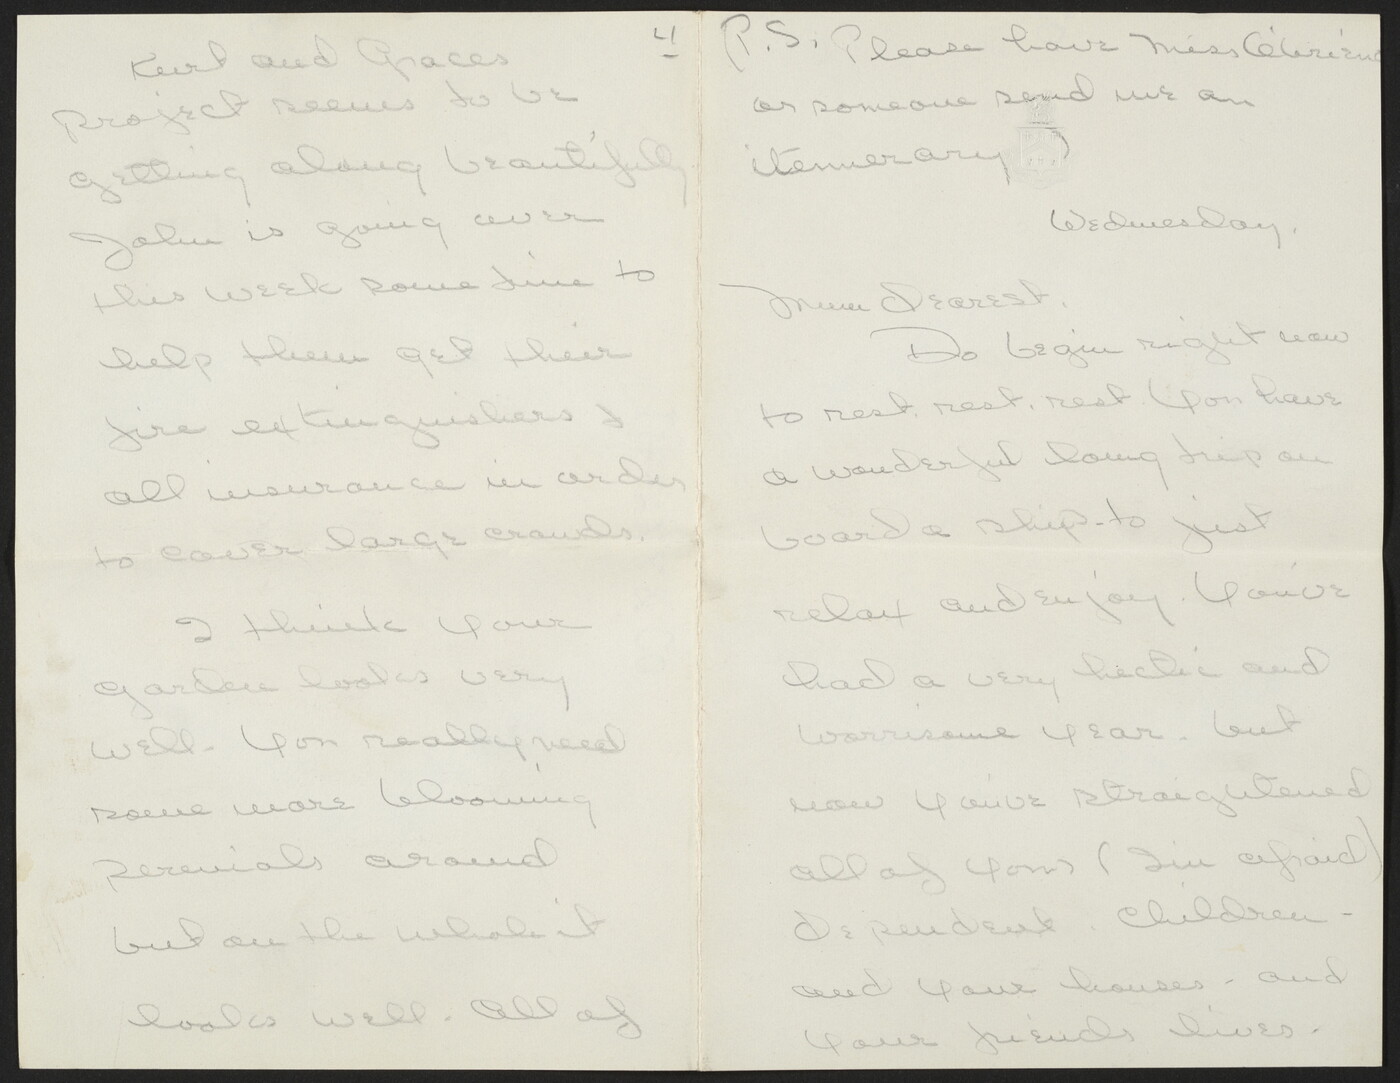 4
Kurt and Graces
project seems to be
getting along beautifully
John is going over
this week some time to
help them get their
fire extinguishers &
all insurance in order
to cover large crowds.
I think your
garden looks very
well. You really need
some more blooming
perenials around
but on the whole it
looks well. All of
P.S. Please have Miss O'brien
or someone send me an
itennerary
Wednesday.
Mum dearest.
Do begin right now
to rest. rest. rest. You have
a wonderful long trip on
board a ship - to just
relax and enjoy. You've
had a very hectic and
worrisome year. but
now you've straightened
all of your (I'm afraid)
dependent. Children -
and your houses - and
your friends lives -